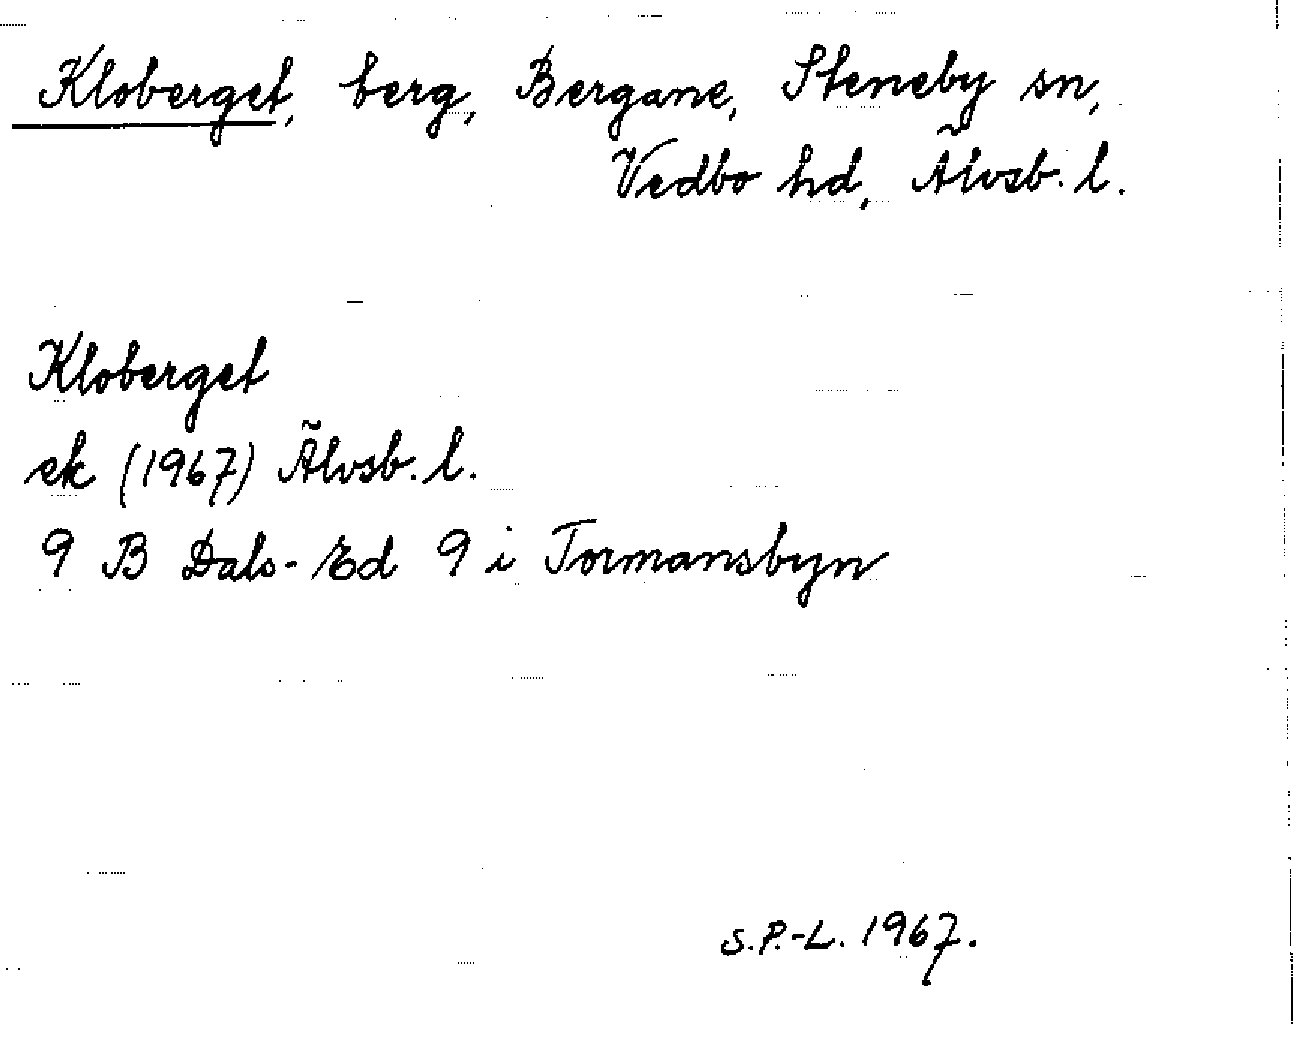 Kloberget, berg, Bergane, Steneby sn,
Vedbo hd, Älvsb. l.
Kloberget
ek (1967) Älvsb. l.
9 B Dals-Ed 9 i Tormansbyn
S.P.-L. 1967.